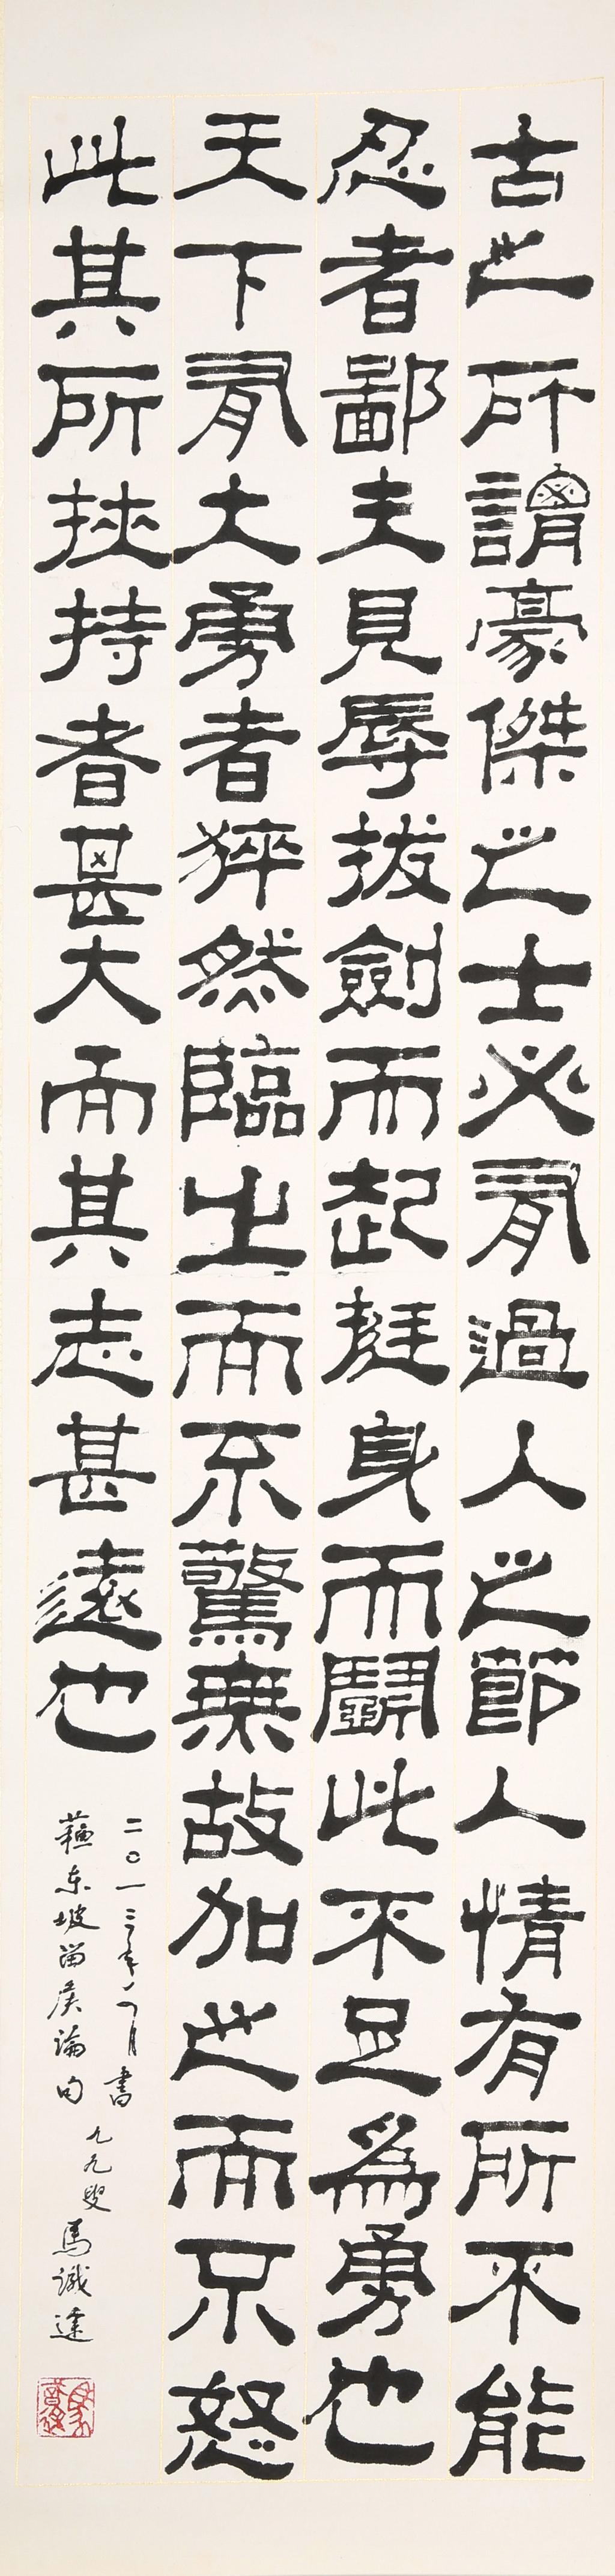 古之所謂豪傑之士必有過人之節人情有所不能
忍者鄙夫見辱拔劍而起挺身而鬭此不足為勇也
天下有大勇者猝然臨之而不驚無故加之而不怒
此其所挾持者甚大而其志甚遠也
二〇一三年八月書
蘇東坡留矦論句
九九叟
馬識達